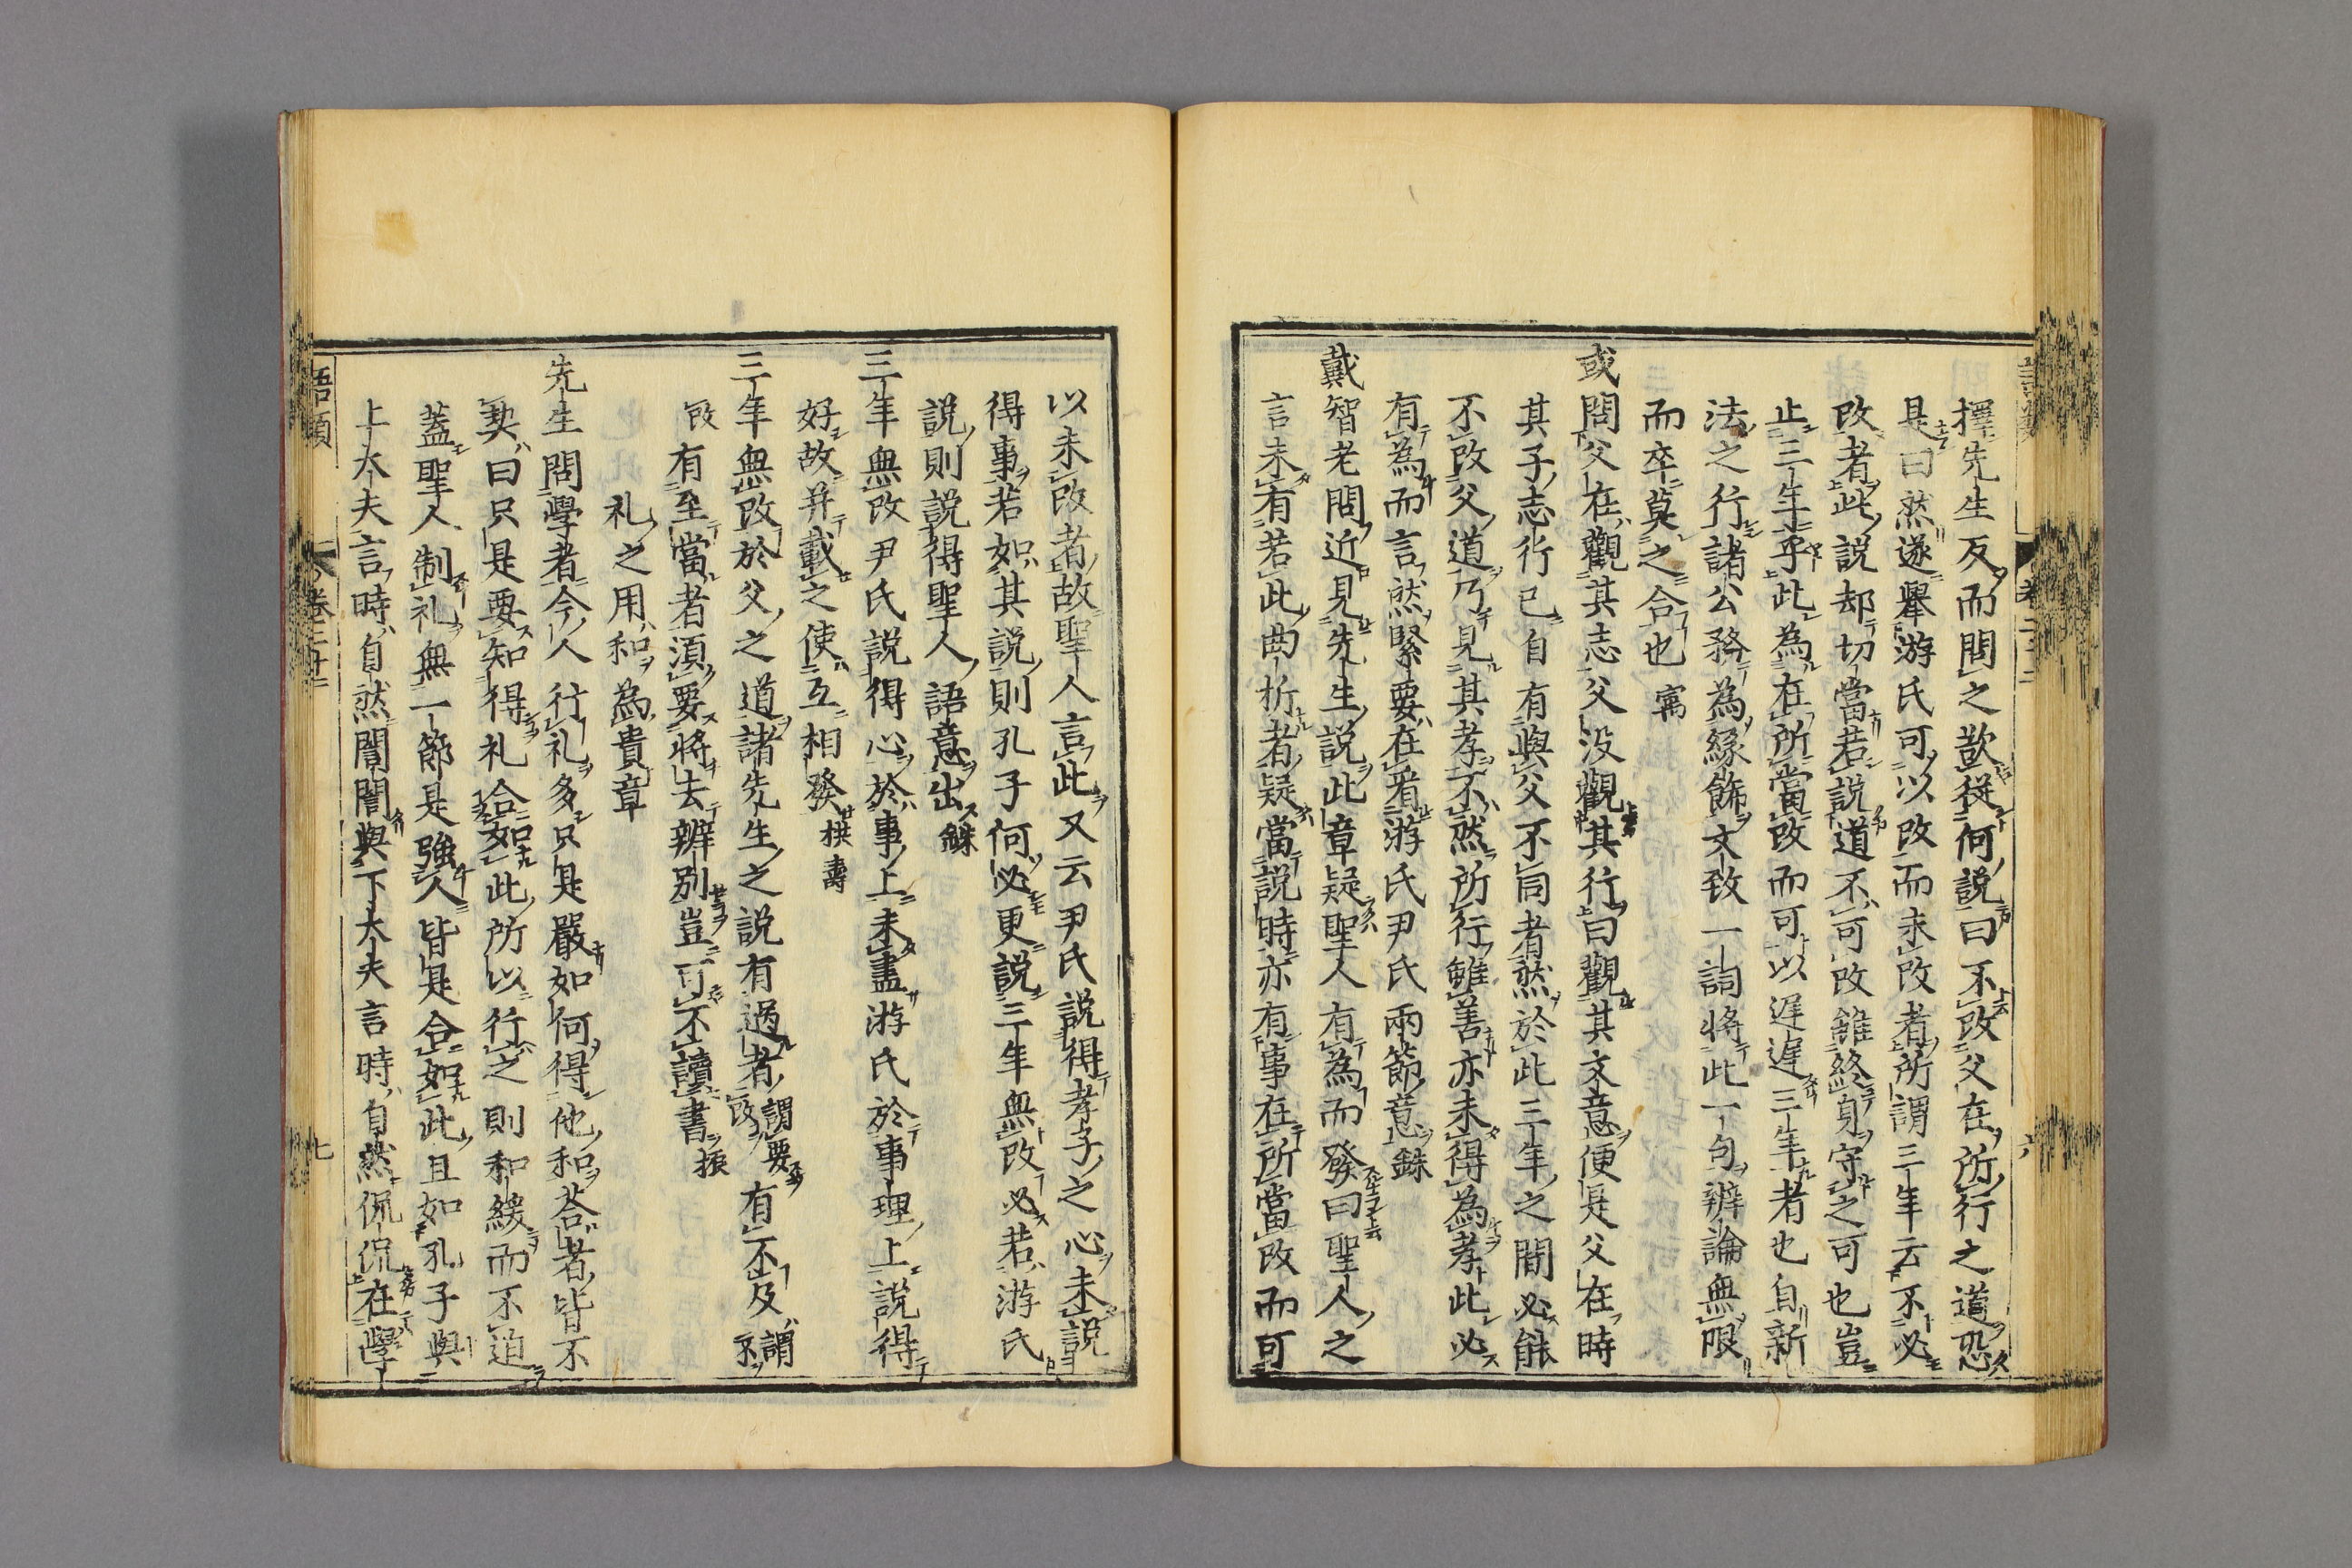 擇先生反而問之歎從何說曰不改父在所行之道恐
是曰然遂舉游氏可以改而未改者所謂三年云不必
改者此說却切當若說道不可改雖終身守之可也豈
止三年乎此為在所當改而可以遲遲三年者也自新
法之行諸公務為緣飾文致一詞將此一句辨論無限
而卒莫之合也 㝢
或問父在觀其志父没觀其行曰觀其文意便是父在時
其子志行已自有與父不同者然於此三年之間必能
不改父道乃見其孝不然所行雖善亦未得為孝此必
有為而言然緊要在看游氏尹氏兩節意 銖
戴智老問近見先生說此章疑聖人有為而發曰聖人之
言未有若此曲折者疑當說時亦有事在所當改而可
以未改者故聖人言此又云尹氏說得孝子之心未說
得事若如其說則孔子何必更說三年無改必若游氏
說則說得聖人語意出 銖
三年無改尹氏說得心於事上未盡游氏於事理上說得
好故并載之使互相發 拱壽
三年無改於父之道諸先生之說有過者謂要改有不及謂不
改有至當者須要將去辨別豈可不讀書 振
礼之用和為貴章
先生問學者今人行礼多只是嚴如何得他和荅者皆不
契曰只是要知得礼合如此所以行之則和緩而不迫
蓋聖人制礼無一節是強人皆是合如此且如孔子與
上大夫言時自然誾誾與下大夫言時自然侃侃在學
語類 卷二十二 七